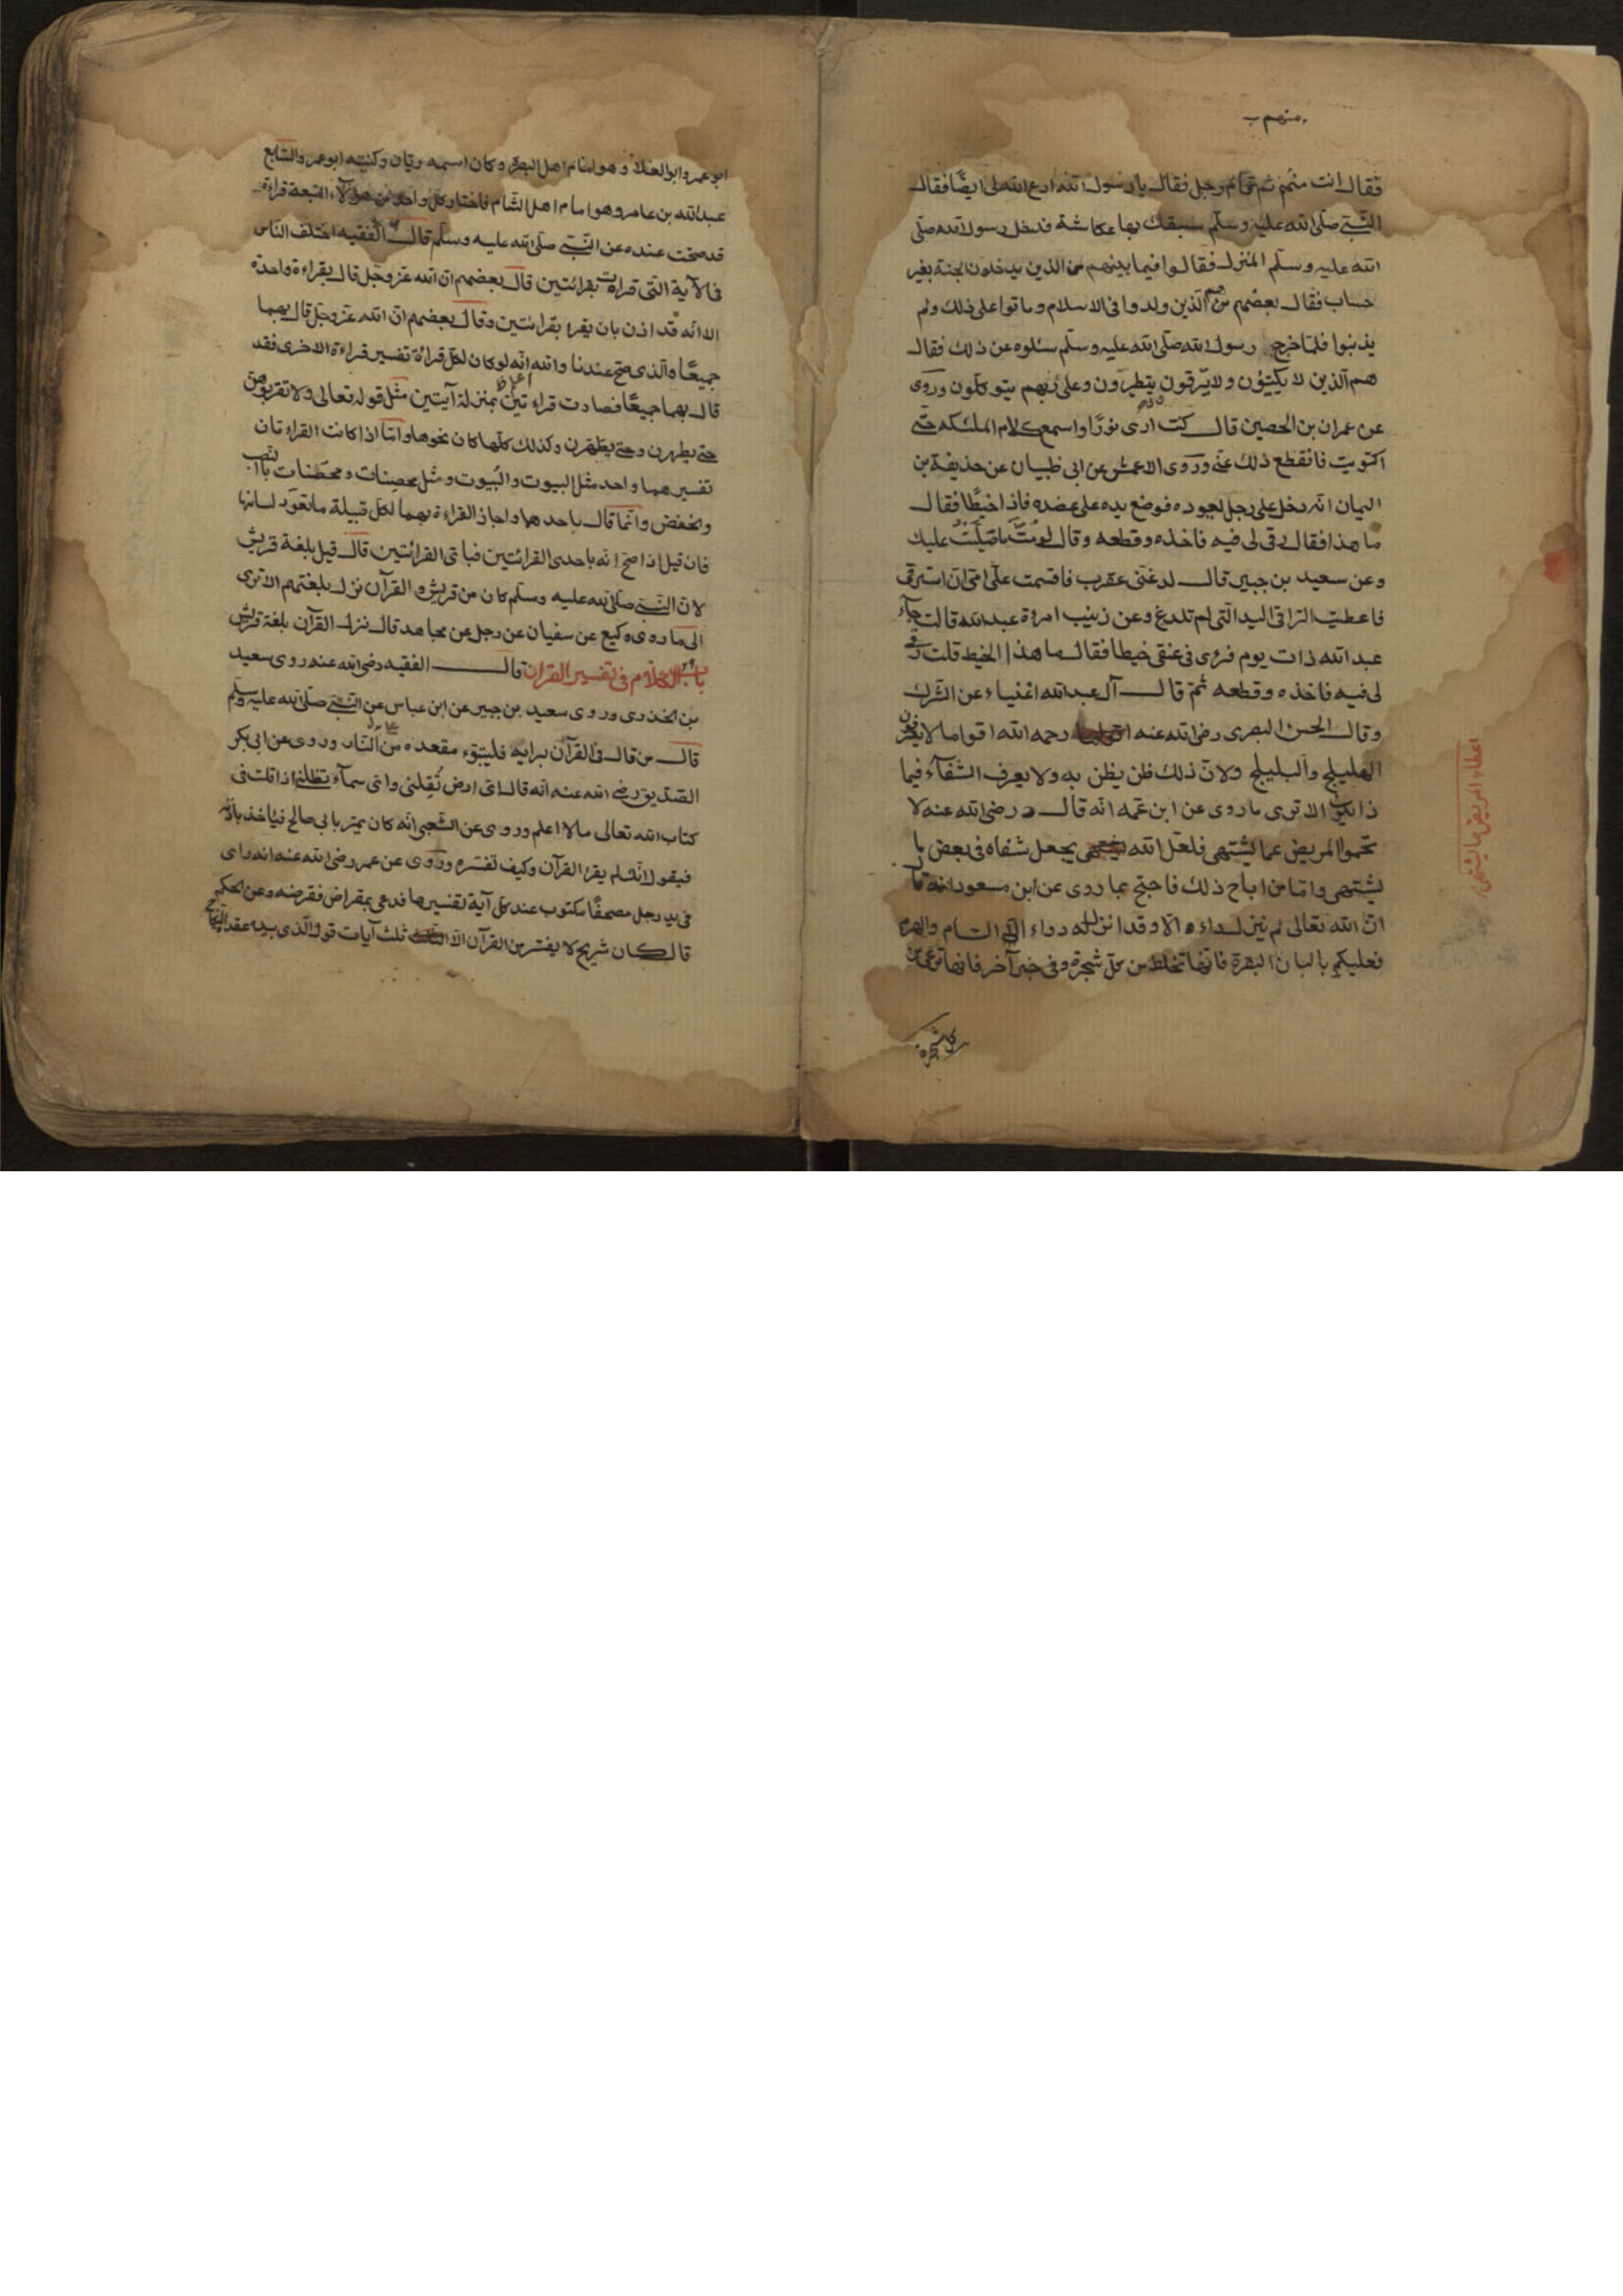 منهم
فقال انت منهم ثم قام رجل فقال يا رسول الله ادع الله لى ايضًا فقال
النّبىّ صلّى الله عليه وسلّم سبقك بها عكاشة فدخل رسول الله صلّى
الله عليه وسلّم المنزل فقالوا فيما بينهم من الذين يدخلون الجنة بغير
حساب فقال بعضهم هم الّذين ولدوا فى الاسلام وماتوا على ذلك ولم
يذنبوا فلمّا خرج رسول الله صلّى الله عليه وسلّم سئلوه عن ذلك فقال
هم الّذين لا يكتوون ولا يرقون يتطيّرون وعلى ربّهم يتوكّلون وروى
عن عمران بن الحصين قال كنت ارى نورًا واسمع كلام الملئكه حتّى
اكتويت فانقطع ذلك عنّى وروى الاعمش عن ابى ظبيان عن حذيفة بن
اليمان انّه دخل على رجل يعوده فوضع يده على عضده فاذا خيطًا فقال
ما هذا فقال رقى لى فيه فاخذه وقطعه وقال لو متَّ ما صلّيتُ عليك
وعن سعيد بن جبير قال لدغتنى عقرب فاقسمت علىّ امّى ان استرقى
فاعطيت الرّاقى اليد الّتى لم تلدغ وعن زينب امرءة عبد الله قالت جآء
عبد الله ذات يوم فرؤى فى عنقى خيطا فقال ما هذا الخيط قلت رقى
لى فيه فاخذه وقطعه ثمّ قال آل عبد الله اغنياء عن الشّرك
وقال الحسن البصرى رضى الله عنه رحمه الله اقواما لا يعرفون
الهليلج والبليلج ولانّ ذلك ظن يظن به ولا يعرف الشّفآء فيما
ذا يكون الا ترى ما روى عن ابن عمه انّه قال رضى الله عنه لا
تحموا المريض عما يشتهى فلعلّ الله يجعل شفاه فى بعض ما
يشتهى وامّا من اباح ذلك فاحتج بما روى عن ابن مسعود انه قال
انّ الله تعالى لم ينزل داء الّا وقد انزل له دواء الّا السّام والهرم
فعليكم بالبان البقرة فانّها تخلط من كلّ شجرة وفى خبر آخر فانها ترعى من
كل شجرة
اعطاء المريض ما يشتهى
ابو عمرو ابو العلآء وهو امام اهل البصرة وكان اسمه ريّان وكنيته ابو عمرو والسّابع
عبد الله بن عامر وهو امام اهل الشّام فاختار كلّ واحد من هؤلآء السّبعة قراءة
قد صحّت عنده عن النّبىّ صلّى الله عليه وسلّم قال الفقيه اختلف النّاس
فى الآية التى قرات بقرائتين قال بعضهم انّ الله عزّ وجلّ قال بقراءة واحدة
الا انّه قد اذن بان يقرء بقرائتين وقال بعضهم انّ الله عزّ وجلّ قال بهما
جميعًا والّذى صحّ عندنا والله انّه لو كان لكلّ قراءة تفسير قراءة الاخرى فقد
قال بهما جميعًا فصارت قراءتين بمنزلة آيتين مثل قوله تعالى ولا تقربوهن
حتّى يطهرن وحتّى يطّهّرن وكذلك كلّها كان نحوها وامّا اذا كانت القراءتان
تفسيرهما واحد مثل البيوت والبُيوت ومثل محصِنات ومحصَنات بالنّصب
والخفض وانّما قال باحدهما واجاز القراءة بهما لكلّ قبيلة ما تعوّد لسانها
فان قيل اذا صحّ انّه باحدى القرائتين فباىّ القرائتين قال قيل بلغة قريش
لانّ النّبىّ صلّى الله عليه وسلّم كان من قريش والقرآن نزل بلغتهم الا ترى
الى ما روى وكيع عن سفيان عن رجل عن مجاهد قال نزل القرآن بلغة قريش
باب الكلام فى تفسير القران قال الفقيه رضى الله عنه روى سعيد
بن الخدرى وروى سعيد بن جبير عن ابن عباس عن النّبىّ صلّى الله عليه وسلّم
قال من قال فى القرآن برايه فليتبوّء مقعده من النّار وروى عن ابى بكر
الصّدّيق رضى الله عنه انّه قال اىّ ارض تُقِلنى واىّ سمآء تظلنى اذا قلت فى
كتاب الله تعالى ما لا اعلم وروى عن الشّعبى انّه كان يمرّ بابى صالح فيأخذ باذنه
فيقول انّك لم يقرء القرآن وكيف تفسّره وروى عن عمر رضى الله عنه انه راى
فى يد رجل مصحفًا مكتوب عند كلّ آية تفسيرها فدعى بمقراض فقرضه وعن الحكم
قال كان شريح لا يفسّر من القرآن الّا ثلث آيات قوله الّذى بيده عقدة النّكاح